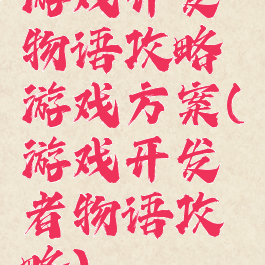 游戏开发
物语攻略
游戏方案(
游戏开发
者物语攻
略)